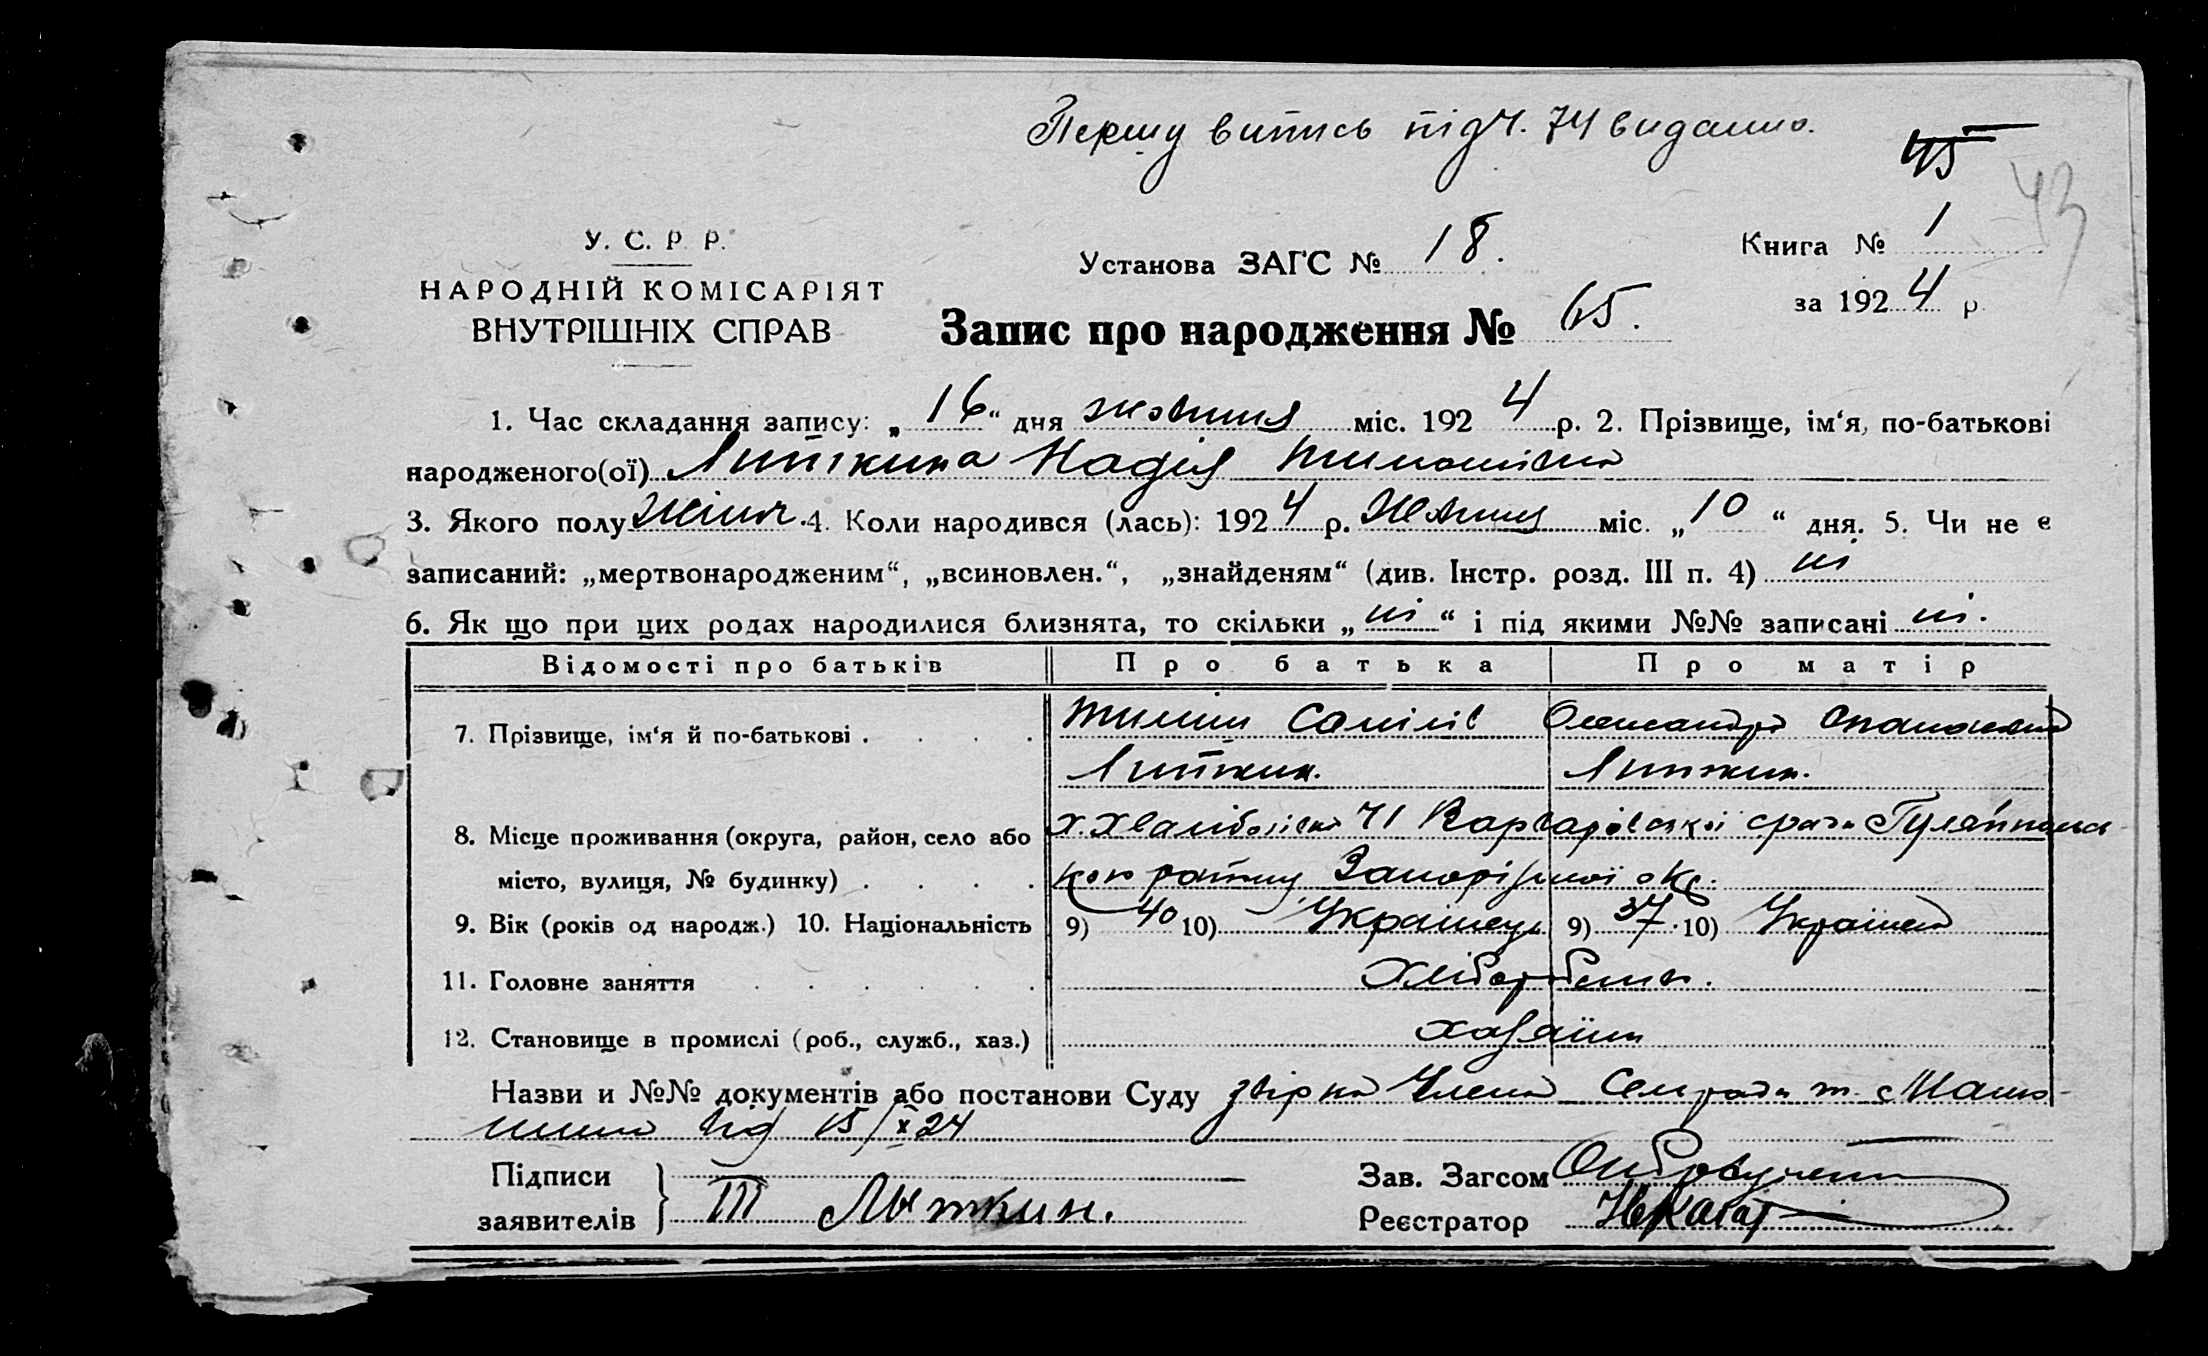 Першу випись під Ч. 74 видано.
45
43
У. С. Р. Р.
НАРОДНІЙ КОМІСАРІЯТ
ВНУТРІШНІХ СПРАВ
Установа ЗАГС № 18.
Книга № 1
за 1924 р.
Запис про народження № 65.
1. Час складання запису: „16“ дня жовтня міс. 1924 р. 2. Прізвище, ім‘я, по-батькові
народженого(ої) Литкина Надія Тимошівна
3. Якого полу жіноч. 4. Коли народився (лась): 1924 р. Жовтня міс. „10“ дня. 5. Чи не є
записаний: „мертвонародженим“, „всиновлен.“, „знайденям“ (див. Інстр. розд. III п. 4) ні
6. Як що при цих родах народилися близнята, то скільки „ні“ і під якими №№ записані ні.
Відомості про батьків Про батька Про матір
7. Прізвище, ім‘я й по-батькові . . . . Олександра Опанасівна
Литкин. Литкин.
8. Місце проживання (округа, район, село або х. 71 Варварівської сради Гуляйпільсь-
місто, вулиця, № будинку) . . . . кого району Запорізької окр.
9. Вік (років од народж.) 10. Національність 9) 40 10) Українець 9) 37. 10) Українка
11. Головне заняття . . . . . . Хліборобство.
12. Становище в промислі (роб., служб., хаз.) хазяїни
Назви и №№ документів або постанови Суду Члена Сельради т.
від 15/X 24
Підписи
заявителів Т Лыткин.
Зав. Загсом
Реєстратор